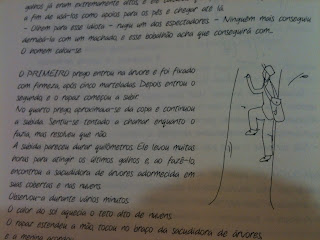 galhos já eram extremamente altos, e ele
a fim de usá-los como apoios para os pés e chegar até lá.
– Olhem para esse idiota – rugiu um dos espectadores. – Ninguém mais conseguiu
derrubá-la com um machado, e esse bobalhão acha que conseguirá com
O homem calou-se
O PRIMEIRO prego entrou na árvore e foi fixado
com firmeza, após cinco marteladas. Depois entrou o
segundo, e o rapaz começou a subir.
No quarto prego aproximou-se da copa e continuou
a subida. Sentiu-se tentado a chamar enquanto o
fazia, mas resolveu que não.
A subida pareceu durar quilômetros. Ele levou muitas
horas para atingir os últimos galhos e, ao fazê-lo,
encontrou a sacudidora de árvores adormecida em
suas cobertas e nas nuvens.
Observou-a durante vários minutos.
O calor do sol aquecia o teto alto de nuvens.
O rapaz estendeu a mão, tocou no braço da sacudidora de árvores,
e a menina acordou